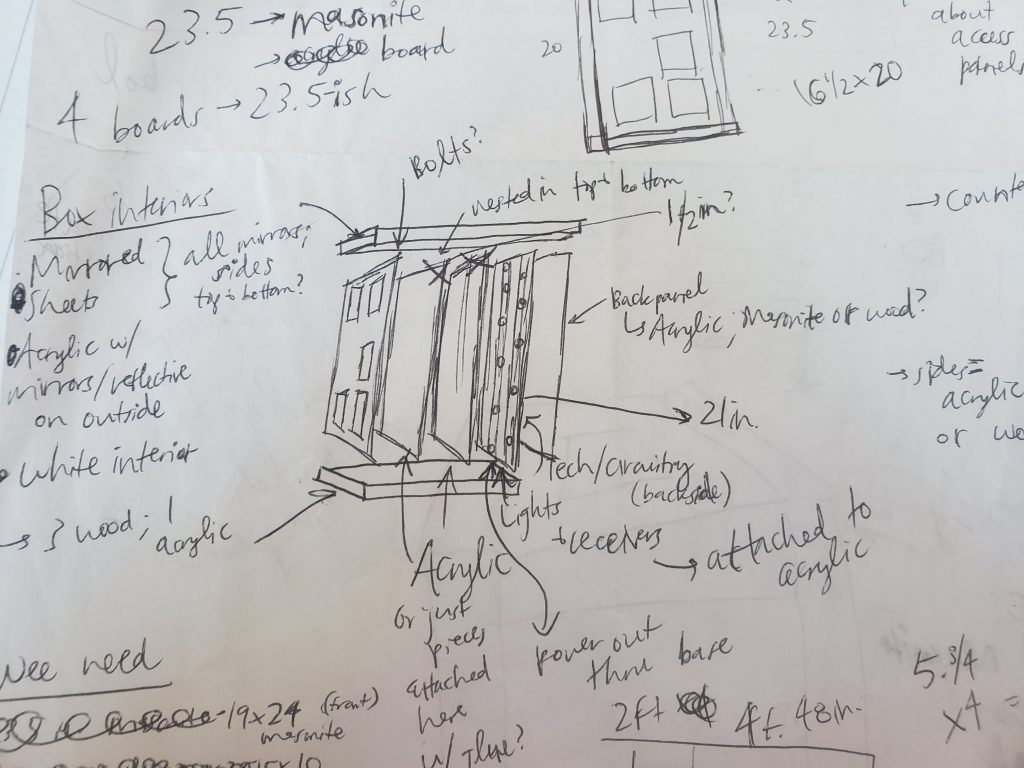 23.5 → masonite
→ board
4 boards → 23.5-ish
20
23.5
16 1/2 x 20
about
access
panels
Bolts?
nested in top + bottom
1/2 in?
→ counte
Box interiors
• Mirrored
• sheets
all mirrors;
sides
top + bottom?
• Acrylic w/
mirrors/reflective
on outside
• White interior
→ 3 wood; 1
acrylic
Back panel
↳ Acrylic, Masonite or wood?
→ sides =
acrylic
or wo
21in.
Tech/Circuitry
(backside)
Lights
+ receivers
→ attached to
acrylic
Acrylic
or just
pieces
attached
here
w/ glue?
power out
thru base
Wee need
19x24 (front)
masonite
2ft 4ft. 48in.
5.3/4
x4 =